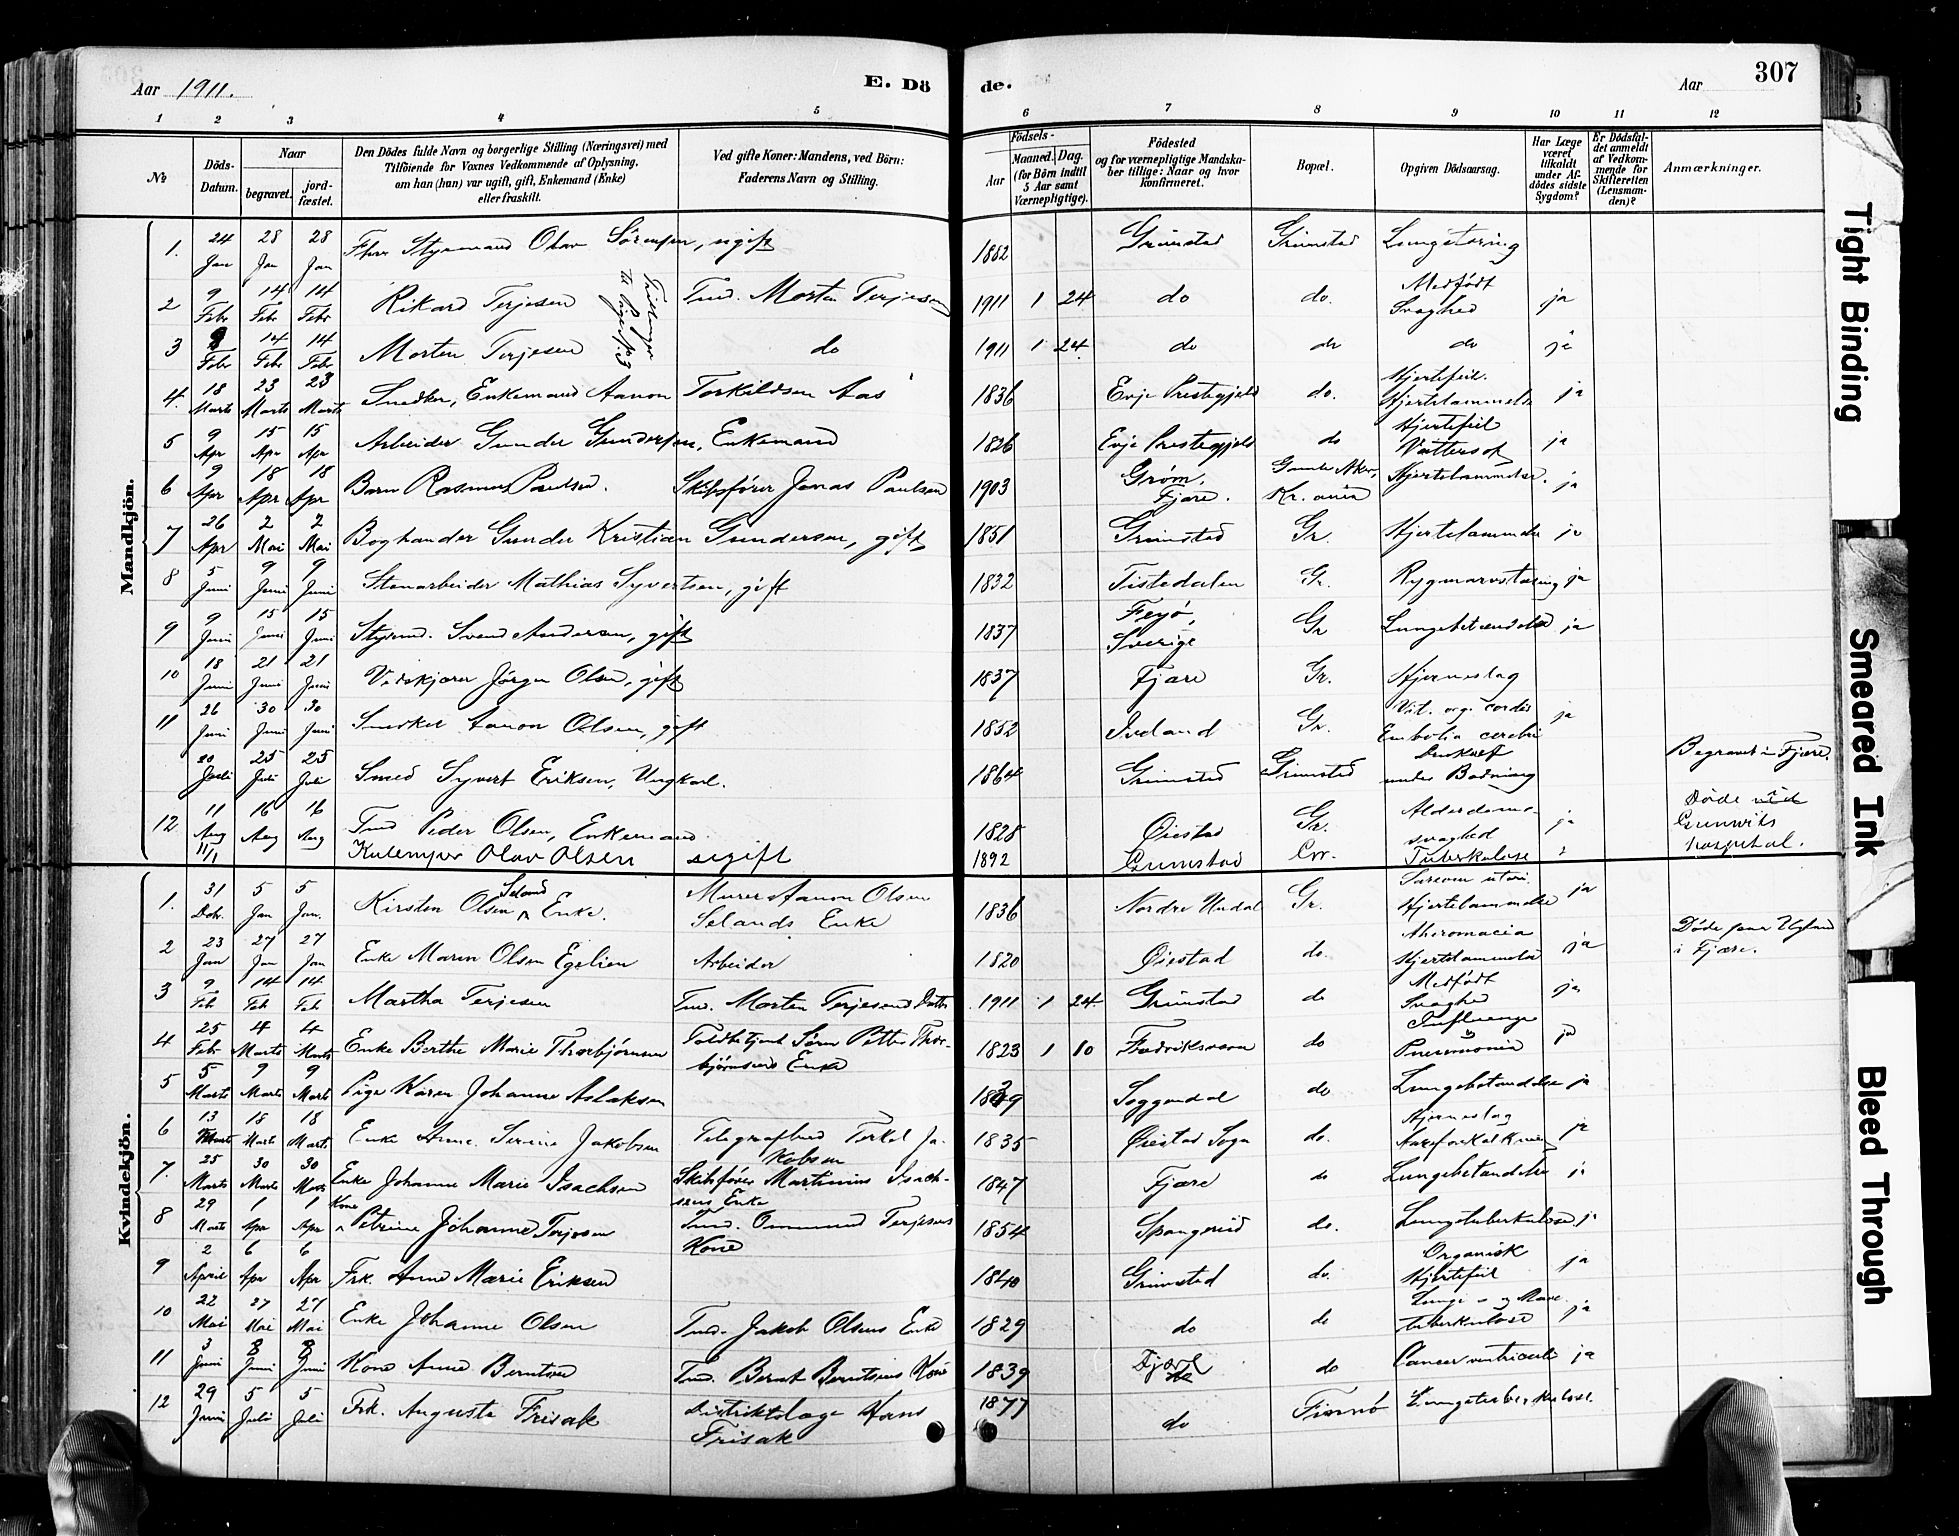 Aar 1911.
E. Dö
de.
Aar
307
1 2 3 4 5 6 7 8 9 10 11 12
No
Döds-Datum.
Naar
begravet.
jord-fæstet.
Den Dödes fulde Navn og borgerlige Stilling (Næringsvei) med
Tilföiende for Voxnes Vedkommende af Oplysning,
om han (hun) var ugift, gift, Enkemand (Enke)
eller fraskilt.
Ved gifte Koner: Mandens, ved Börn:
Faderens Navn og Stilling.
Födsels-
Aar
Maaned. Dag.
(for Börn indtil
5 Aar samt
Værnepligtige).
Födested
og for værnepligtige Mandska-
ber tillige: Naar og hvor
konfirmeret.
Bopæl.
Opgiven Dödsaarsag.
Har Læge
været
tilkaldt
under Af-
dödes sidste
Sygdom?
Er Dödsfal-
det anmeldt
af Vedkom-
mende for
Skifteretten
(Lensman-
den)?
Anmærkninger.
Mandkjön.
1. 24 Jan 28 Jan 28 Jan Fhv. Styrmand Olav Sörensen, ugift 1882 Grimstad Grimstad Lungetæring
2 9 Febr 14 Febr 14 Febr Rikard Terjesen Tmd. Morten Terjesen 1911 1 24 do do. Medfödt Svaghed ja
Trillinger
3 9 Febr 14 Febr 14 Febr Morten Terjesen do 1911 1 24. do do do ja
4. 18 Marts 23 Marts 23 Marts Snedker, Enkemand Aanon Torkildsen Aas 1836 Evje Prestegjeld do. Hjertefeil. Hjertelammelse ja
5 9 Apr 15 Apr 15 Apr Arbeider Gunder Gundersen, Enkemand 1826 Evje Prestegjeld do Hjertefeil Vattersot ja
6 9 Apr 18 Apr 18 Apr Barn Rasmus Paulsen. Skibsförer Jonas Paulsen 1903 Gröm, Fjære. Aker, Kr.ania Hjertelammelse. ja
7 26 Apr 2 Mai 2 Mai Boghandler Gunder Kristian Gundersen, gift 1851 Grimstad Gr. Hjertelammelse ja
8 5 Juni 9 Juni 9 Juni Stenarbeider Mathias Syvertsen, gift 1832 Tistedalen Gr. Rygmarvstæring ja
9 9 Juni 15 Juni 15 Juni Styrmd. Svend Andersen, gift 1837 Sverige Gr Lungebetændelse ja
10 18 Juni 21 Juni 21 Juni Vedskjærer Jörgen Olsen, gift 1837 Fjære Gr. Hjerneslag
11 26 Juni 30 Juni 30 Juni Snedker Aanon Olsen, gift 1852 Iveland Gr. Vit. org. cordis Embolia cerebri ja
20 Juli 25 Juli 25 Juli Smed Syvert Eriksen, Ungkarl. 1864 Grimstad Grimstad Druknet under Badning Begravet i Fjære.
12 11 Aug 16 Aug 16 Aug Tmd Peder Olsen, Enkemand 1828 Öiestad Gr. Alderdoms-svaghed ja Döde ved
11/1 Kulemper Olav Olsen ugift 1892 Grimstad Gr. Tuberkulose hospital.
Kvindekjön.
1. 31 Dcbr. 5 Jan 5 Jan. Kirsten Olsen Seland Enke. Murer Aanon Olsen Selands Enke 1836 Nordre Undal Gr. Sarcom uteri. Hjertelammelse ja
2 23 Jan 27 Jan 27 Jan Enke Maren Olsen Egelien Arbeider 1820 Öiestad do. Hjertelammelse ja Döde paa i Fjære.
3 9 Feb 14 Feb 14 Feb Martha Terjesen Tmd. Morten Terjesens Datter 1911 1 24. Grimstad do Medfödt Svaghed ja
4 25 Febr 4 Marts 4 Marts Enke Berthe Marie Thorbjörnsen Toldbetjent Sören Petter Thor-björnsens Enke 1823 1 10 Fredriksværn do Influenza Pneumonia ja
5 5 Marts 9 Marts 9 Marts Pige Karen Johanne Aslaksen 1839 Soggendal do Lungebetændelse ja
6 13 Marts 18 Marts 18 Marts Enke Anne Serine Jakobsen Telegrafbud Terkel Ja-kobsen 1835 Öiestad Sogn do. Hjerneslag ja
7. 25 Marts 30 Marts 30 Marts Enke Johanne Marie Isachsen Skibsförer Martinius Isach-sens Enke 1847 Fjære do Lungebetændelse ja
8 29 Marts 1 Apr 1 Apr Kone Petrine Johanne Terjesen Tmd. Ommund Terjesens Kone 1854 Spangereid do. Lungetuberkulose ja
9 2 April 6 Apr 6 Apr Frk. Anne Marie Eriksen 1840 Grimstad do. Organisk Hjertefeil ja
10 22 Mai 27 Mai 27 Mai Enke Johanne Olsen Tmd. Jakob Olsens Enke 1829 do do Lunge- og Mave tuberkulose ja
11 3 Juni 8 Juni 8 Juni Kone Anne Berntsen Tmd. Bernt Berntsens Kone 1839 Fjære do Cancer ventriculi ja
12 29 Juni 5 Juli 5 Juli Frk. Auguste Frisak Distriktslæge Hans Frisak 1877 do Lungetuberkulose.
Tight Binding
Smeared Ink
Bleed Through